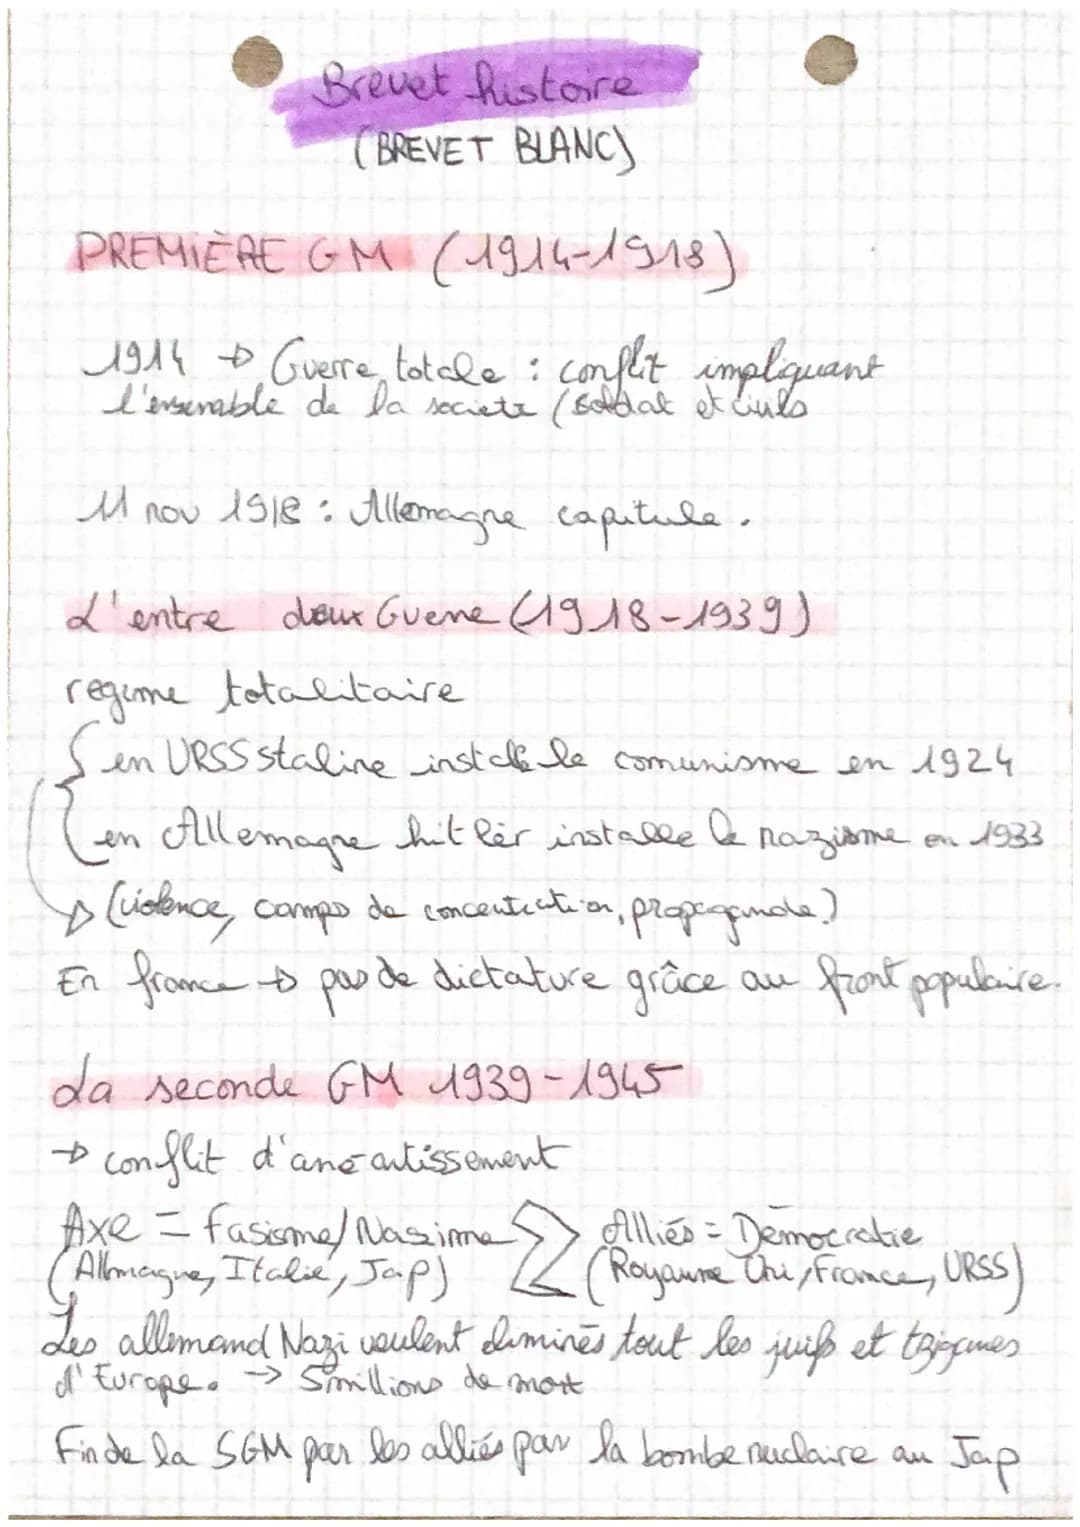 Brevet histoire
(BREVET BLANC)
PREMIÈRE GM (1914-1918)
1914 → Guerre totale : conflit impliquant
l'ensemble de la societe (soldat et civils
11 nov 1918 : Allemagne capitule.
L'entre deux Guerre (1918-1939)
regime totalitaire
en URSS staline installe le comunisme en 1924
en Allemagne hitler installe le nazisme en 1933
→ (violence, camps de concentration, propagande)
En france → pas de dictature grâce au front populaire.
La seconde GM 1939-1945
→ conflit d'anéantissement
Axe = fasisme/Nazisme Alliés = Démocratie
(Allmagne, Italie, Jap) (Royaume Uni, France, URSS)
Les allemand Nazi veulent éliminés tout les juifs et tziganes
d'Europe. → 5 millions de mort
Fin de la SGM par les alliés par la bombe nuclaire au Jap